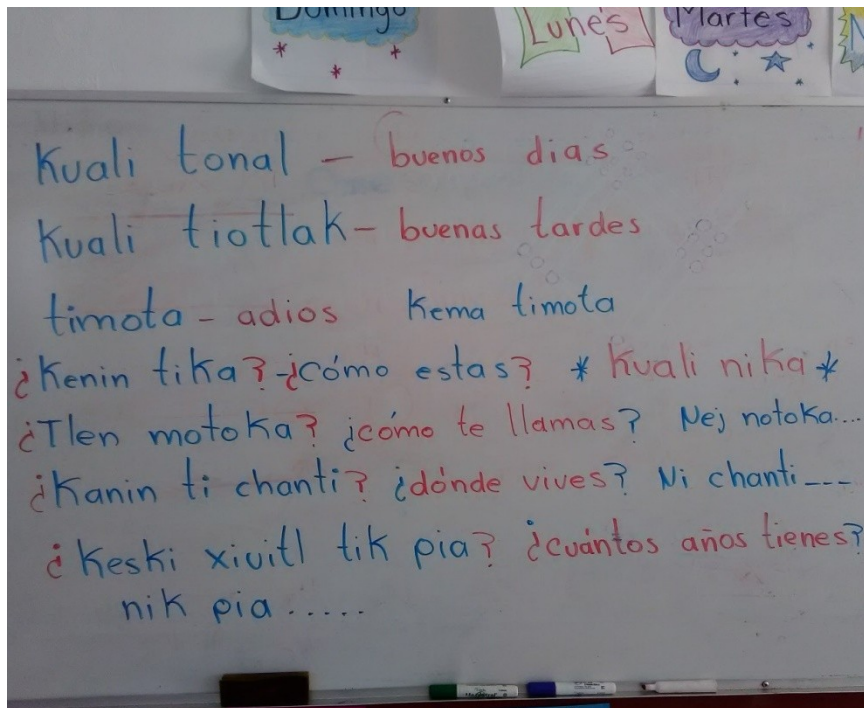 Domingo Lunes Martes
Kuali tonal – buenos dias
Kuali tiotlak – buenas tardes
timota – adios Kema timota
¿Kenin tika? - ¿cómo estas? * Kuali nika *
¿Tlen motoka? ¿cómo te llamas? Nej notoka....
¿Kanin ti chanti? ¿dónde vives? Ni chanti ---
¿Keski xiuitl tik pia? ¿cuántos años tienes?
nik pia .....